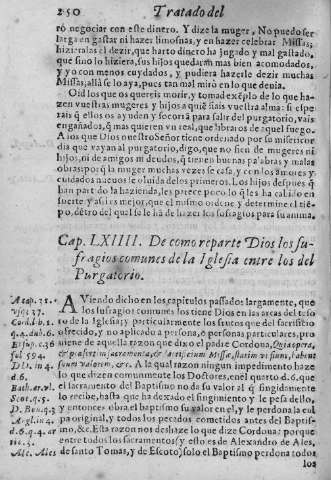 250 Tratado del
ró negociar con este dinero. Y dize la muger, No puedo ser
larga en gastar ni hazer limosnas, y en hazer celebrar Missas;
hizieralas el dezir, que harto dinero ha jugado y mal gastado,
que sino lo hiziera, sus hijos quedaran mas bien acomodados,
y yo con menos cuydados, y pudiera hazerle dezir muchas
Missas, allá se lo aya, pues tan mal miró en lo que devia.
Oid los que os quereis morir, y tomad exéplo de lo que ha-
zen vuestras mugeres y hijos a quié fiais vuestra alma: si espe
rais q̃ ellos os ayuden y socorrã para salir del purgatorio, vais
engañados, q̃ mas quieren vn real, que libraros de aquel fuego.
A los que Dios nuestro Señor tiene ordenado por su misericor
dia que vayan al purgatorio, digo, que no fien de mugeres ni
hijos, ni de amigos ni deudos, q̃ tienen buenas palabras y malas
obras: porq̃ la muger muchas vezes se casa, y con los amores y
cuidados nuevos se olvida de los primeros. Los hijos despues q̃
han partido la hazienda, les parece poco lo q̃ les ha caido en
suerte y assi es mejor, que el mismo ordene y determine el tié-
po, détro del qual se le há de hazer los sufragios para su anima.
Cap. LXIIII. De como reparte Dios los su-
fragios comunes de la Iglesia entre los del
Purgatorio.
AViendo dicho en los capitulos passados largamente, que
los sufragios comunes los tiene Dios en las arcas del teso
ro de la Iglesia y particularmente los suyos que del sacrificio
ofrecido, y no aplicado a persona, o personas particulares, pro
viene de aquella razon que dixo el padre Cordoua,
valorem, &c. A la qual razon ningun impedimento haze
lo que dizen comunmente los Doctores, en el quarto d.6. que
el sacramento del Baptismo no da su valor al q̃ fingidamente
lo recibe, hasta que ha dexado el fingimiento y le pesa dello,
y entonces obra el baptismo su valor en el, y le perdona la cul
pa original, y todos los pecados cometidos antes del Baptis-
mo, &c. Esta razon nos deshaze lo que dize Cordoua: porque
entre todos los sacramentos (y esto es de Alexandro de Ales,
de santo Tomas, y de Escoto) solo el Baptismo perdona todos
los
A cap. 35.
vsq; 37.
Cord. li. 1.
q. 4. dub. 6.
Bisup. c. 36
fol 594.
D Th. in 4.
d. 6.
Scot. q. 5.
Angl. in 4.
Alc. Ales